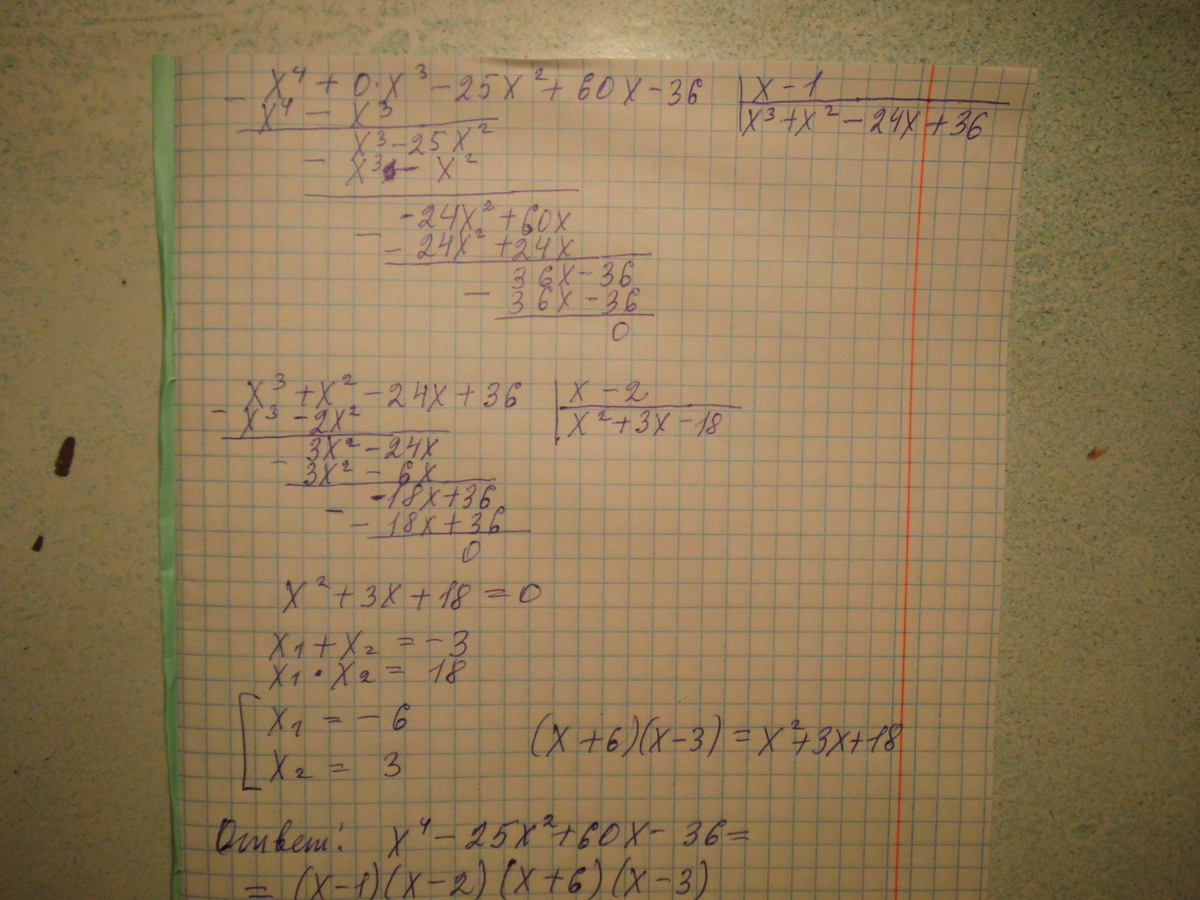 - x⁴ + 0·x³ - 25x² + 60x - 36 | x - 1
x⁴ - x³ | x³ + x² - 24x + 36
x³ - 25x²
- x³ - x²
-24x² + 60x
- - 24x² + 24x
36x - 36
- 36x - 36
0
- x³ + x² - 24x + 36 | x - 2
x³ - 2x² | x² + 3x - 18
- 3x² - 24x
3x² - 6x
- -18x + 36
- 18x + 36
0
x² + 3x + 18 = 0
x₁ + x₂ = -3
x₁ · x₂ = 18
[ x₁ = -6
x₂ = 3
(x + 6)(x - 3) = x² + 3x + 18
Ответ: x⁴ - 25x² + 60x - 36 =
= (x - 1)(x - 2)(x + 6)(x - 3)